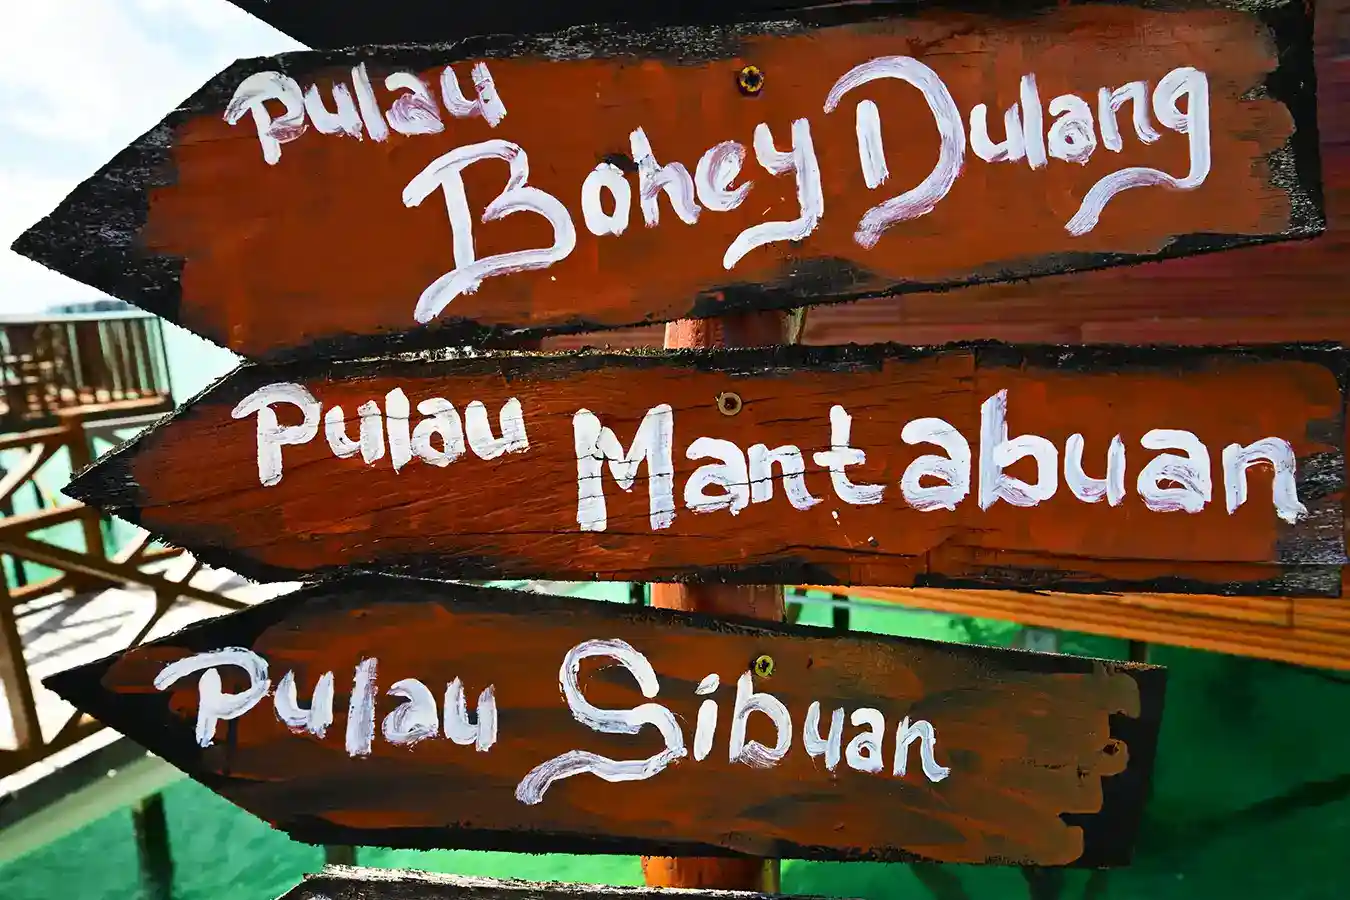 Pulau
Bohey Dulang
Pulau Mantabuan
Pulau Sibuan